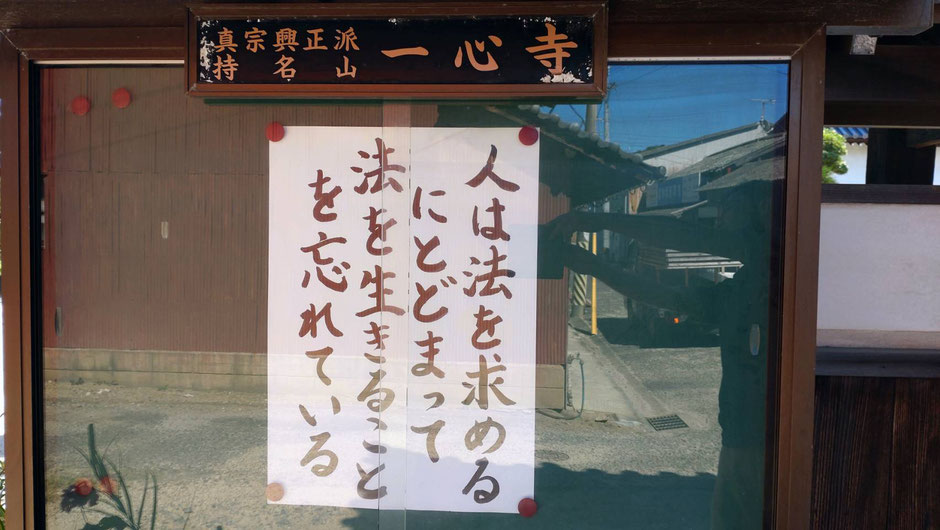 真宗興正派
持名山
一心寺
人は法を求める
にとどまって
法を生きること
を忘れている